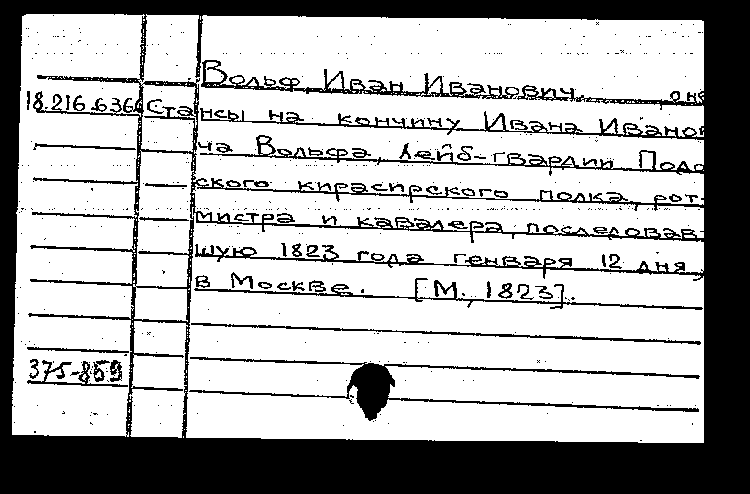 Вольф, Иван Иванович. , о не
18.216.6.366 Стансы на кончину Ивана Иванов
ча Вольфа, Лейб-гвардии Подо
ского кирасирского полка, рот-
мистра и кавалера, последовав-
шую 1823 года генваря 12 дня,
в Москве. [М., 1823].
375-859